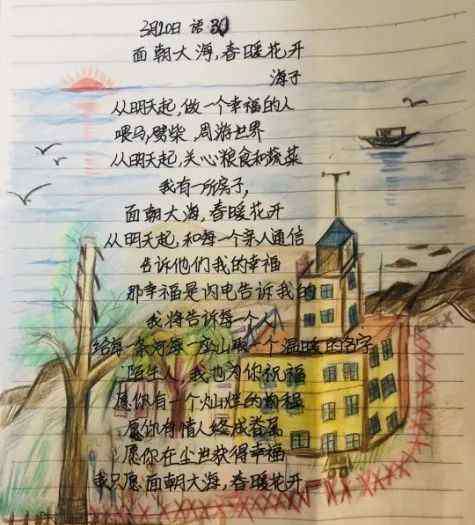 3月20日 语
面朝大海,春暖花开
海子
从明天起,做一个幸福的人
喂马,劈柴,周游世界
从明天起,关心粮食和蔬菜
我有一所房子,
面朝大海,春暖花开
从明天起,和每一个亲人通信
告诉他们我的幸福
那幸福是闪电告诉我的
我将告诉每一个人
给每一条河每一座山取一个温暖的名字
陌生人,我也为你祝福
愿你有一个灿烂的前程
愿你有情人终成眷属
愿你在尘世获得幸福
我只愿面朝大海,春暖花开